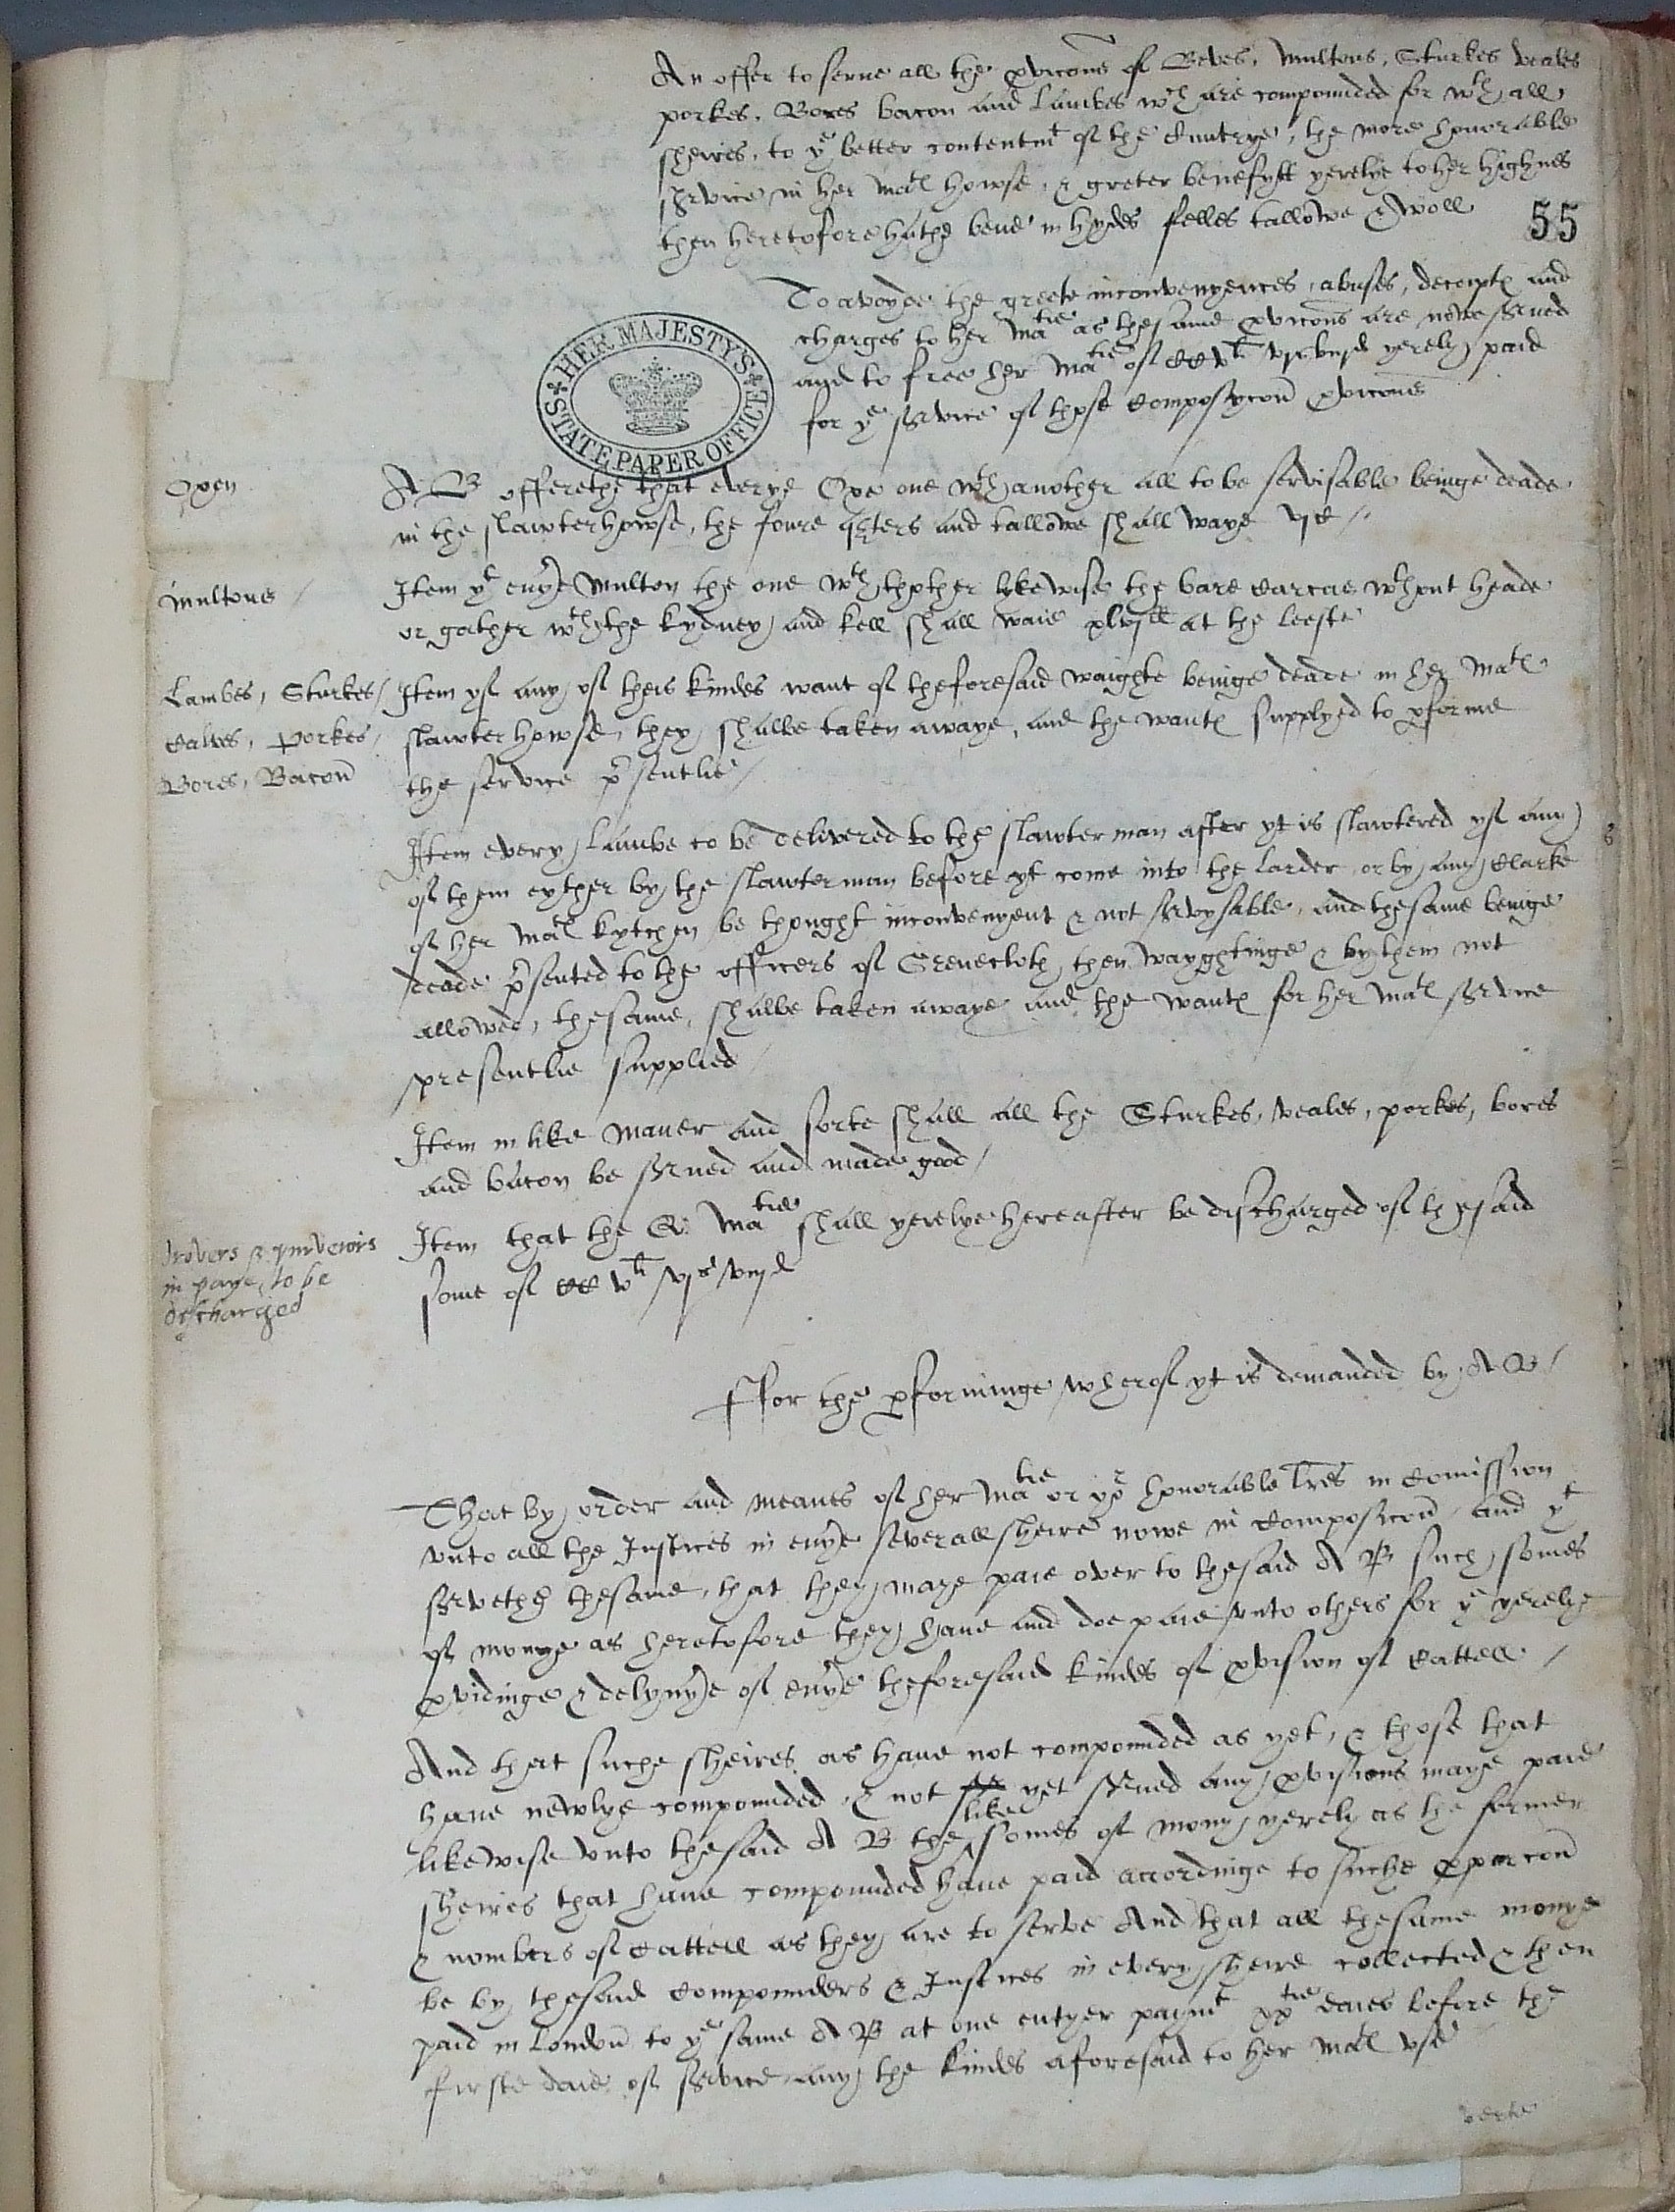 An offer to serve all the pvicons of Beves, Multons, Sturkes veales
porkes, Bores bacon and Lambes wch are compounded for wth all
sheires, to ye better contentmt of the Cuntrye, the more honorable
service in her Matl howse, & greter benefytt yerelye to her highnes
then heretofore hathe bene in hydes felles tallowe & woll
55
To avoyde the greete inconvenyences, abuses, deceiptl and
charges to her Matie as thesame pvicons are nowe served
and to free her Matie of CCvli vjs viijd yerely paid
for ye service of those Composycon pvicons
HER MAJESTY'S
STATE PAPER OFFICE
Oxen
A B offerethe that everye Oxe one wth another all to be servisable beinge deade
in the slawterhowse, the foure qters and tallowe shall waye vjC /
Multons /
Item yt euye Multon the one wth thother likewise the bare Carcas wthout heade
or gather wth the kydney and kell shall waie xlvjll at the leeste
Lambes, Sturkes /
Calves, Porkes,
Bores, Bacon
Item yf any of theis kindes want of theforesaid waighte beinge deade in her Matl
slawter howse, they shalbe taken awaye, and the wantl supplyed to pforme
the service psentlie /
Item every Lambe to be delivered to the slawter man after yt is slawtered yf any
of them eyther by the slawterman before yt come into the Larder or by any Clarke
of her Matl kytchen be thought inconvenyent & not servysable, and thesame beinge
deade psented to the officers of Grenecloth then wayghtinge & by them not
allowed, thesame, shalbe taken awaye and the wantl for her Matl service
presentlie supplied /
Item in like maner and sorte shall all the Sturkes, veales, porkes, bores
and bacon be served and made good /
Drovers & purveiors
in paye, to be
discharged
Item that the Q. Matie shall yerelye hereafter be discharged of thesaid
some of CCvli vjs viijd
Ffor the pforminge wherof yt is demanded by A B /
That by order and meanes of her Matie or yor honorable Lres in Comission
vnto all the Justices in euye severall sheire nowe in Composicon, and yt
servethe thesame, that they maye paie over to thesaid A B such somes
of monye as heretofore they haue and doe paie vnto others for ye yerelye
pvidinge & delyuye of euye theforesaid kindes of pvision of Cattell /
And that suche sheires as haue not compounded as yet, & those that
haue newlye compounded, & not yet served any pvisions maye paie
likewise vnto thesaid A B the like somes of mony yerely as the former
sheires that haue compounded haue paid accordinge to suche pporcon
& nombers of Cattell as they are to serve And that all thesame monye
be by thesaid Compounders & Justices in every sheire collected & then
paid in London to ye same A B at one entyer paymt xxtie daies before the
firste daie of service any the kindes aforesaid to her Matl vse
verte